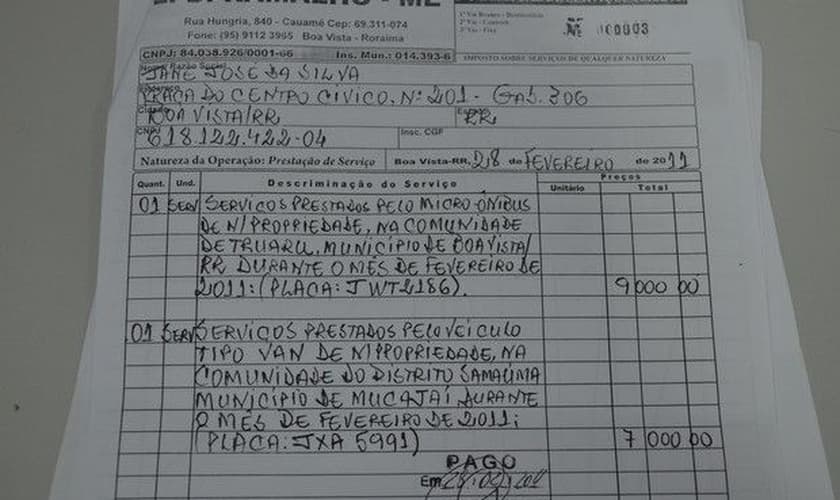 RAMALHO - ME
Rua Hungria, 840 - Cauamé Cep: 69.311-074
Fone: (95) 9112 3965 Boa Vista - Roraima
1ª Via Branca -
2ª Via -
3ª Via - Fixa
Nº 000003
CNPJ: 84.038.926/0001-66 Ins. Mun.: 014.393-6
IMPOSTO SOBRE SERVIÇO DE QUALQUER NATUREZA
Nome/Razão Social
JANE JOSÉ DA SILVA
PRAÇA DO CENTRO CIVICO, Nº 201 - GAB. 306
BOA VISTA/RR RR
CNPJ Insc. CGF
618.122.422-04
Natureza da Operação: Prestação de Serviço Boa Vista-RR, 28 de FEVEREIRO de 2011
Quant. Und. Descriminação do Serviço Preços
Unitário Total
01 SERV SERVIÇOS PRESTADOS PELO MICRO-ÔNIBUS
DE N/PROPRIEDADE, NA COMUNIDADE
DE TRUARU, MUNICÍPIO DE BOA VISTA/
RR DURANTE O MÊS DE FEVEREIRO DE
2011: (PLACA: JWT2186). 9 000 00
01 SERV SERVIÇOS PRESTADOS PELO VEICULO
TIPO VAN DE N/PROPRIEDADE, NA
COMUNIDADE DO DISTRITO SAMAÚMA
MUNICÍPIO DE MUCAJAÍ DURANTE
O MÊS DE FEVEREIRO DE 2011;
(PLACA: JXA 5991) 7 000 00
PAGO
Em